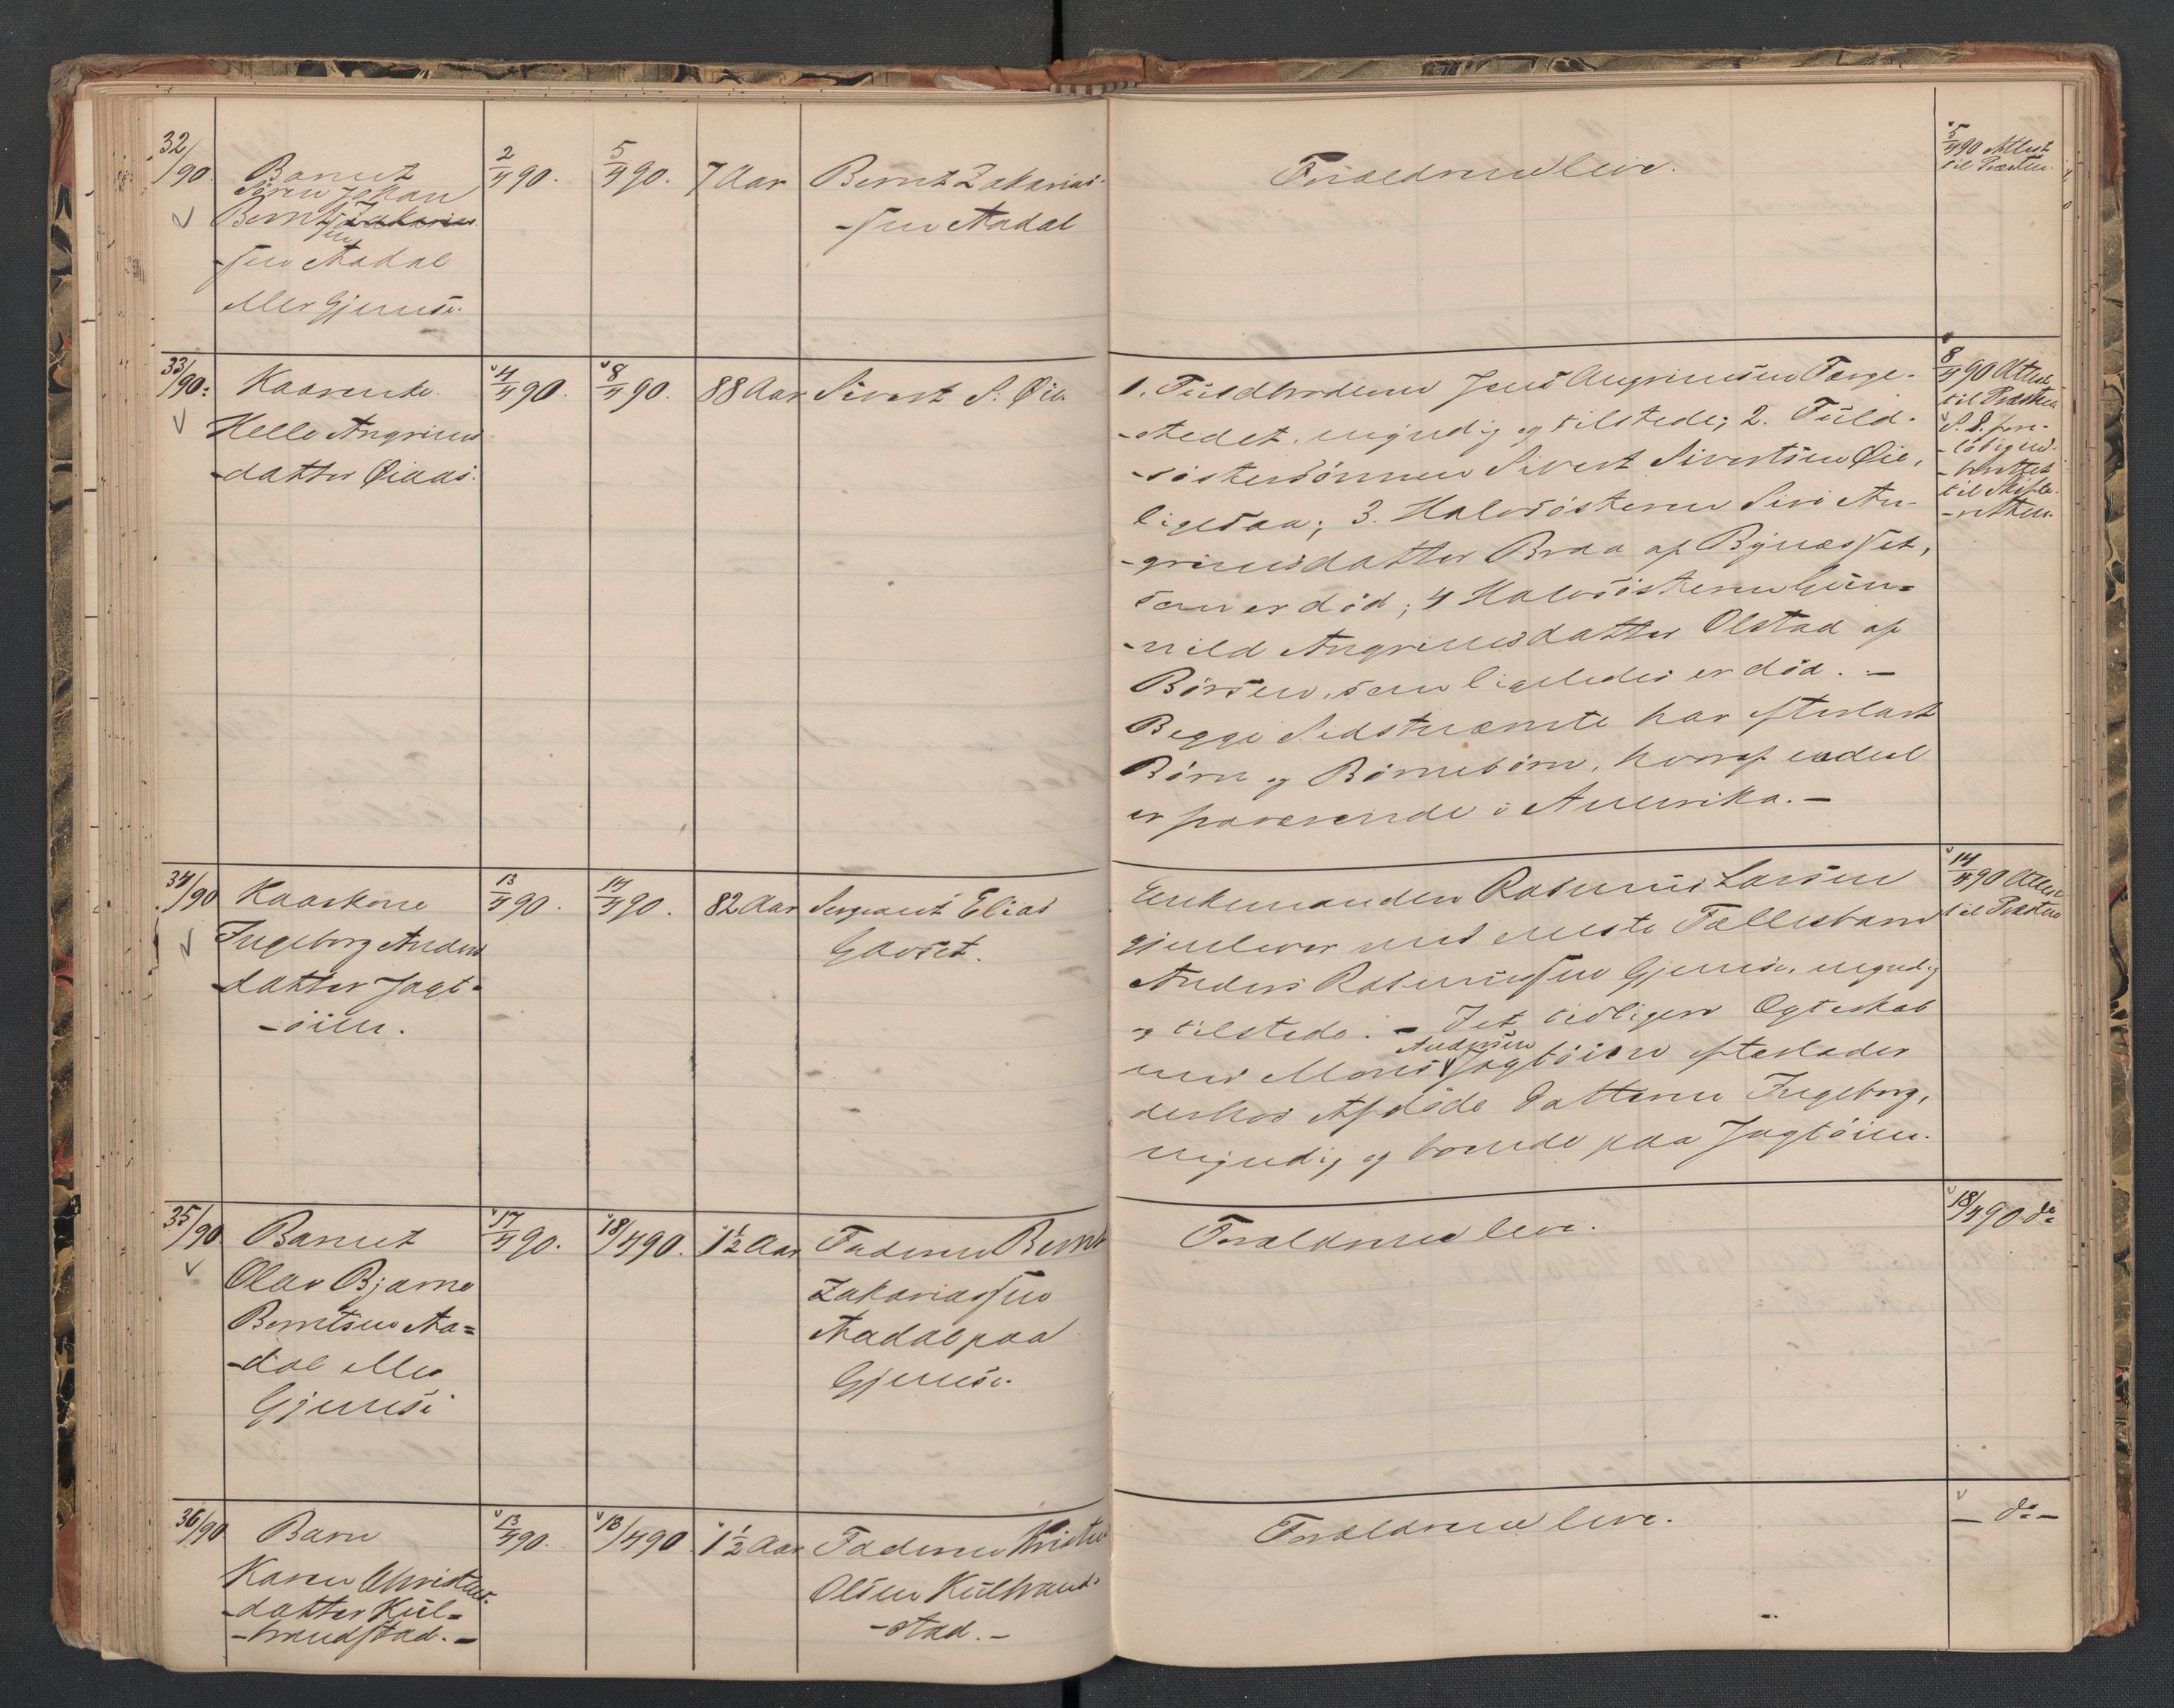 32/90.
Barnet
Sören Johan
Bernt Zakarias-
sen
-sen Aadal
eller Gjemse.
2/4 90.
5/4 90.
7 Aar
Bernt Zakarias-
-sen Aadal
Forældrene leve.
5/4 90 Attest
til Præsten.
33/90.
Kaarenke.
Helle Angrims-
-datter Øiaas.
4/4 90.
8/4 90.
88 Aar
Sivert S. Øie.
1. Fuldbroderen Jens Angrimsen Farge-
-stedet, myndig og tilstede; 2. Fuld-
-söstersönnen Sivert Sivertsen Øie,
ligesaa; 3. Halvsösteren Siri An-
-grimsdatter Braa af Bynesset,
som er död; 4 Halvsösteren Gun-
-nild Angrimsdatter Olstad af
Börsen, som ligeledes er död. -
Begge Sidstnævnte har efterladt
Börn og Börnebörn, hvoraf endeel
er fraværende i Amerika. -
8/4 90 Attest
til Præsten
S. D. fore-
-löbig ind-
-berettet
til Skifte-
-retten.
34/90
Kaarkone
Ingeborg Anders-
-datter Jagt-
-öien.
13/4 90.
14/4 90.
82 Aar
Sergeant Elias
Gauset.
Enkemanden Rasmus Larsen
gjenlever med eneste Fællesbarn
Anders Rasmussen Gjemse, myndig
og tilstede. - I et tidligere Ægteskab
Andersen
med Mons Jagtöien efterlader
derhos Afdöde Datteren Ingeborg,
myndig og boende paa Jagtöien.
14/4 90 Attest
til Præsten
35/90
Barnet
Olav Bjarne
Berntsen Aa-
-dal eller
Gjemse
17/4 90.
18/4 90.
1 1/2 Aar
Faderen Bernt
Zakariassen
Aadal paa
Gjemse.
Forældrene leve.
18/4 90 do
36/90
Barn
Karen Christens-
-datter Kul-
-brandstad. -
13/4 90.
18/4 90
1 1/2 Aar
Faderen Kristen
Olsen Kulbrand-
-stad. -
Forældrene leve.
- do -